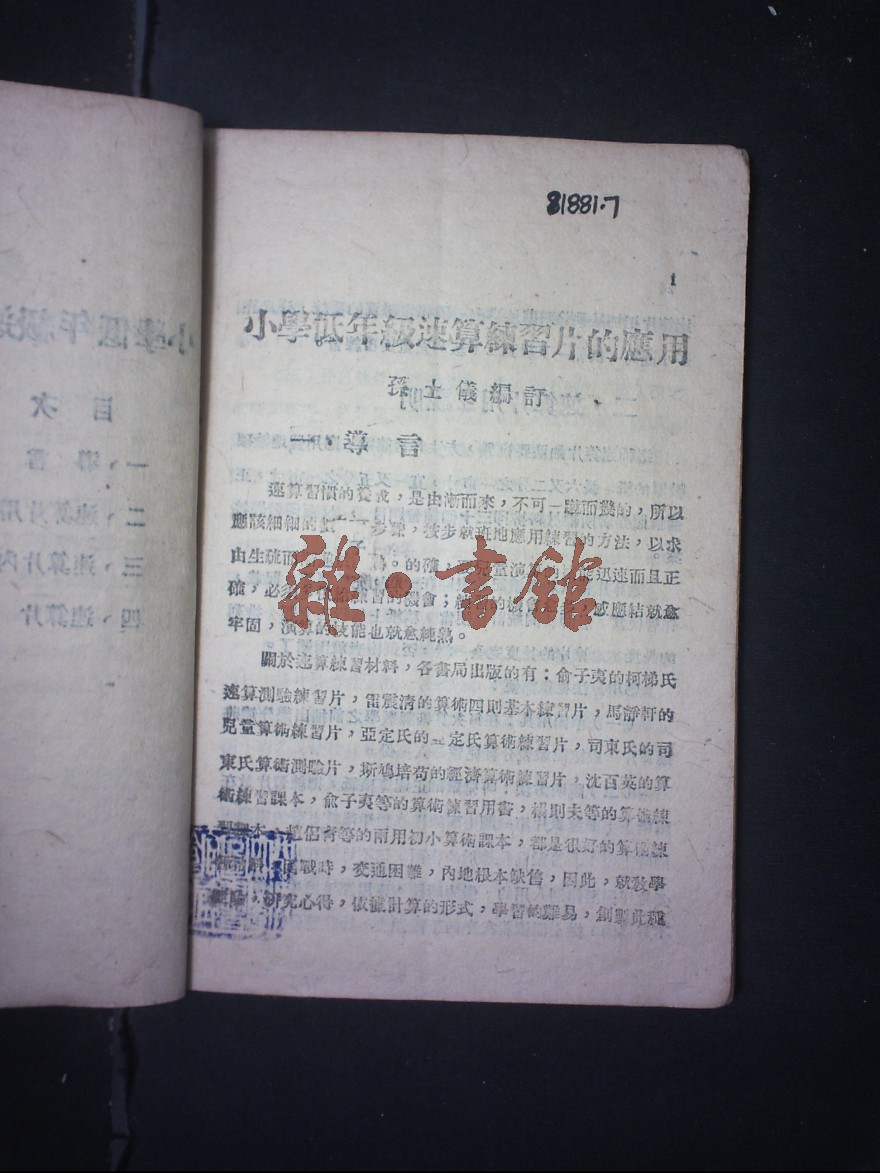 小學低年級速
目次
一、導言
二、速算片用
三、速算片內
四、速算片
81881.7
1
小學低年級速算練習片的應用
孫士儀編訂
一、導言
速算習慣的養成，是由漸而來，不可一蹴而幾的，所以
應該細細的 步驟，按步就班地應用練習的方法，以求
由生疏而 的確， 兒童演算 能迅速而且正
確，必 練習的機會； 感應結就愈
牢固，演算的技能也就愈純熟。
關於速算練習材料，各書局出版的有：俞子夷的柯梯氏
速算測驗練習片，雷震清的算術四則基本練習片，馬靜軒的
兒童算術練習片，亞定氏的 定氏算術練習片，司東氏的司
東氏算術測驗片，斯鳩培荀的經濟算術練習片，沈百英的算
術練習課本，俞子夷等的算術練習用書，楊則夫等的算術練
習課本，趙侶青等的兩用初小算術課本，都是很好的算術練
戰時，交通困難，內地根本缺售，因此，就教學
研究心得，依據計算的形式，學習的難易，創製此種
雜·書館